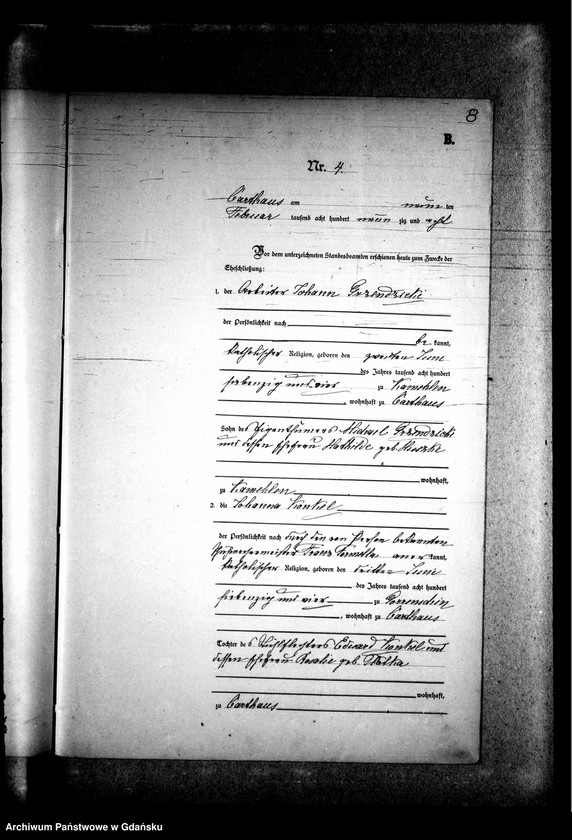 8
B.
Nr. 4.
Carthaus am neun ten
Februar tausend acht hundert neun zig und acht
Vor dem unterzeichneten Standesbeamten erschienen heute zum Zwecke der
Eheschließung:
1. der Arbeiter Johann Grzendzicki
der Persönlichkeit nach
be kannt,
katholischer Religion, geboren den zweiten Juni
des Jahres tausend acht hundert
siebenzig und vier zu Kamehlen
, wohnhaft zu Carthaus
Sohn des Eigenthümers Michael Grzendzicki
und dessen Ehefrau Mathilde geb.
wohnhaft,
zu Kamehlen
2. die Johanna Konkel
der Persönlichkeit nach durch den von Person bekannten
Franz aner kannt,
katholischer Religion, geboren den dritten Juni
des Jahres tausend acht hundert
siebenzig und vier zu
, wohnhaft zu Carthaus
Tochter des Eduard Konkel und
dessen Ehefrau Rosalie geb.
wohnhaft,
zu Carthaus
Archiwum Państwowe w Gdańsku